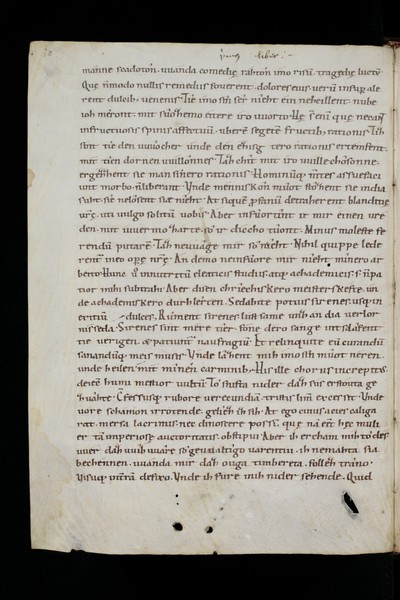 primus liber
manne scadoton. uuanda comedię rahton imo risu. tragedię luctū.
Quę n̄ modo nullis remediis fouerent dolores eius. uerū insup ale
rent dulcib; uenenis. Tie imo sin sēr nieht ein neheilent. nube
ioh mēront. mit suozemo eitere iro uuorto. Hę s̄ enī quę necant
infructuosis spinis affectuū. uberē segetē fructib; rationis. Tīz
sint tie den uuuocher unde den ezisg tero rationis ertempfent.
mit tien dornen uuillonnes. Tāz chīt mit iro uuillechosonne.
ergezzent sie man sinero rationis. Hominūq; mtes assuefaci
unt morbo. n̄ liberant. Unde menniskon muot stozent sie in dia
suht. sie nelosent sia nieht. At si quē pfanū detraherent blanditię
urę. uti uulgo solitū uobis. Aber infuortint ir mir einen ure
den. mit iuuermo zarte. so ir diccho tuont. Minus moleste fe
rendū putarē. Taz neuuage mir so nieht. Nihil quippe lede
rent in eo opę nrę. An demo neinfuore mir nieht minero ar
beito. Hunc ū innutritū eleaticis studiis atq; achademicis. s. surri
tior mihi subtrahi. Aber disen chriechiskero meisterskefte. un
de achademiskero durhlerten. Sed abite potius sirenes usq; in
exitiū dulces. Rument sirenes lustsame unz an dia uerlor
nisseda. Sirenes sint mere tier. fone dero sange intslafent
tie uerigen. & patiunt naufragiū. Et relinquite eū curandū
sanandūq; meis musis. Unde lazent mih imo sin muot neren.
unde heilen. mit minen carminib;. His ille chorus increpitus.
deiecit humi mestior uultū. To snifta nider daz sus erstouta ge
huaste. Cfessusq; rubore uerecundiā. tristis limē excessit. Unde
uore schamon irrotende. gelich ih sih. At ego cuius acies caliga
rat mersa lacrimis. nec dinoscere possē. quę nā eet hęc muli
er tā imperiosę auctoritatis. obstipui. Aber ih ercham mih tó des
uuer daz uuib uuare so geuualtigo uarentiu. ih nemahta sia
bechennen. uuanda mir daz ouga timbereta. follez tranō.
Visuq; in trā defixo. Unde ih fure mih nider sehende. Quid